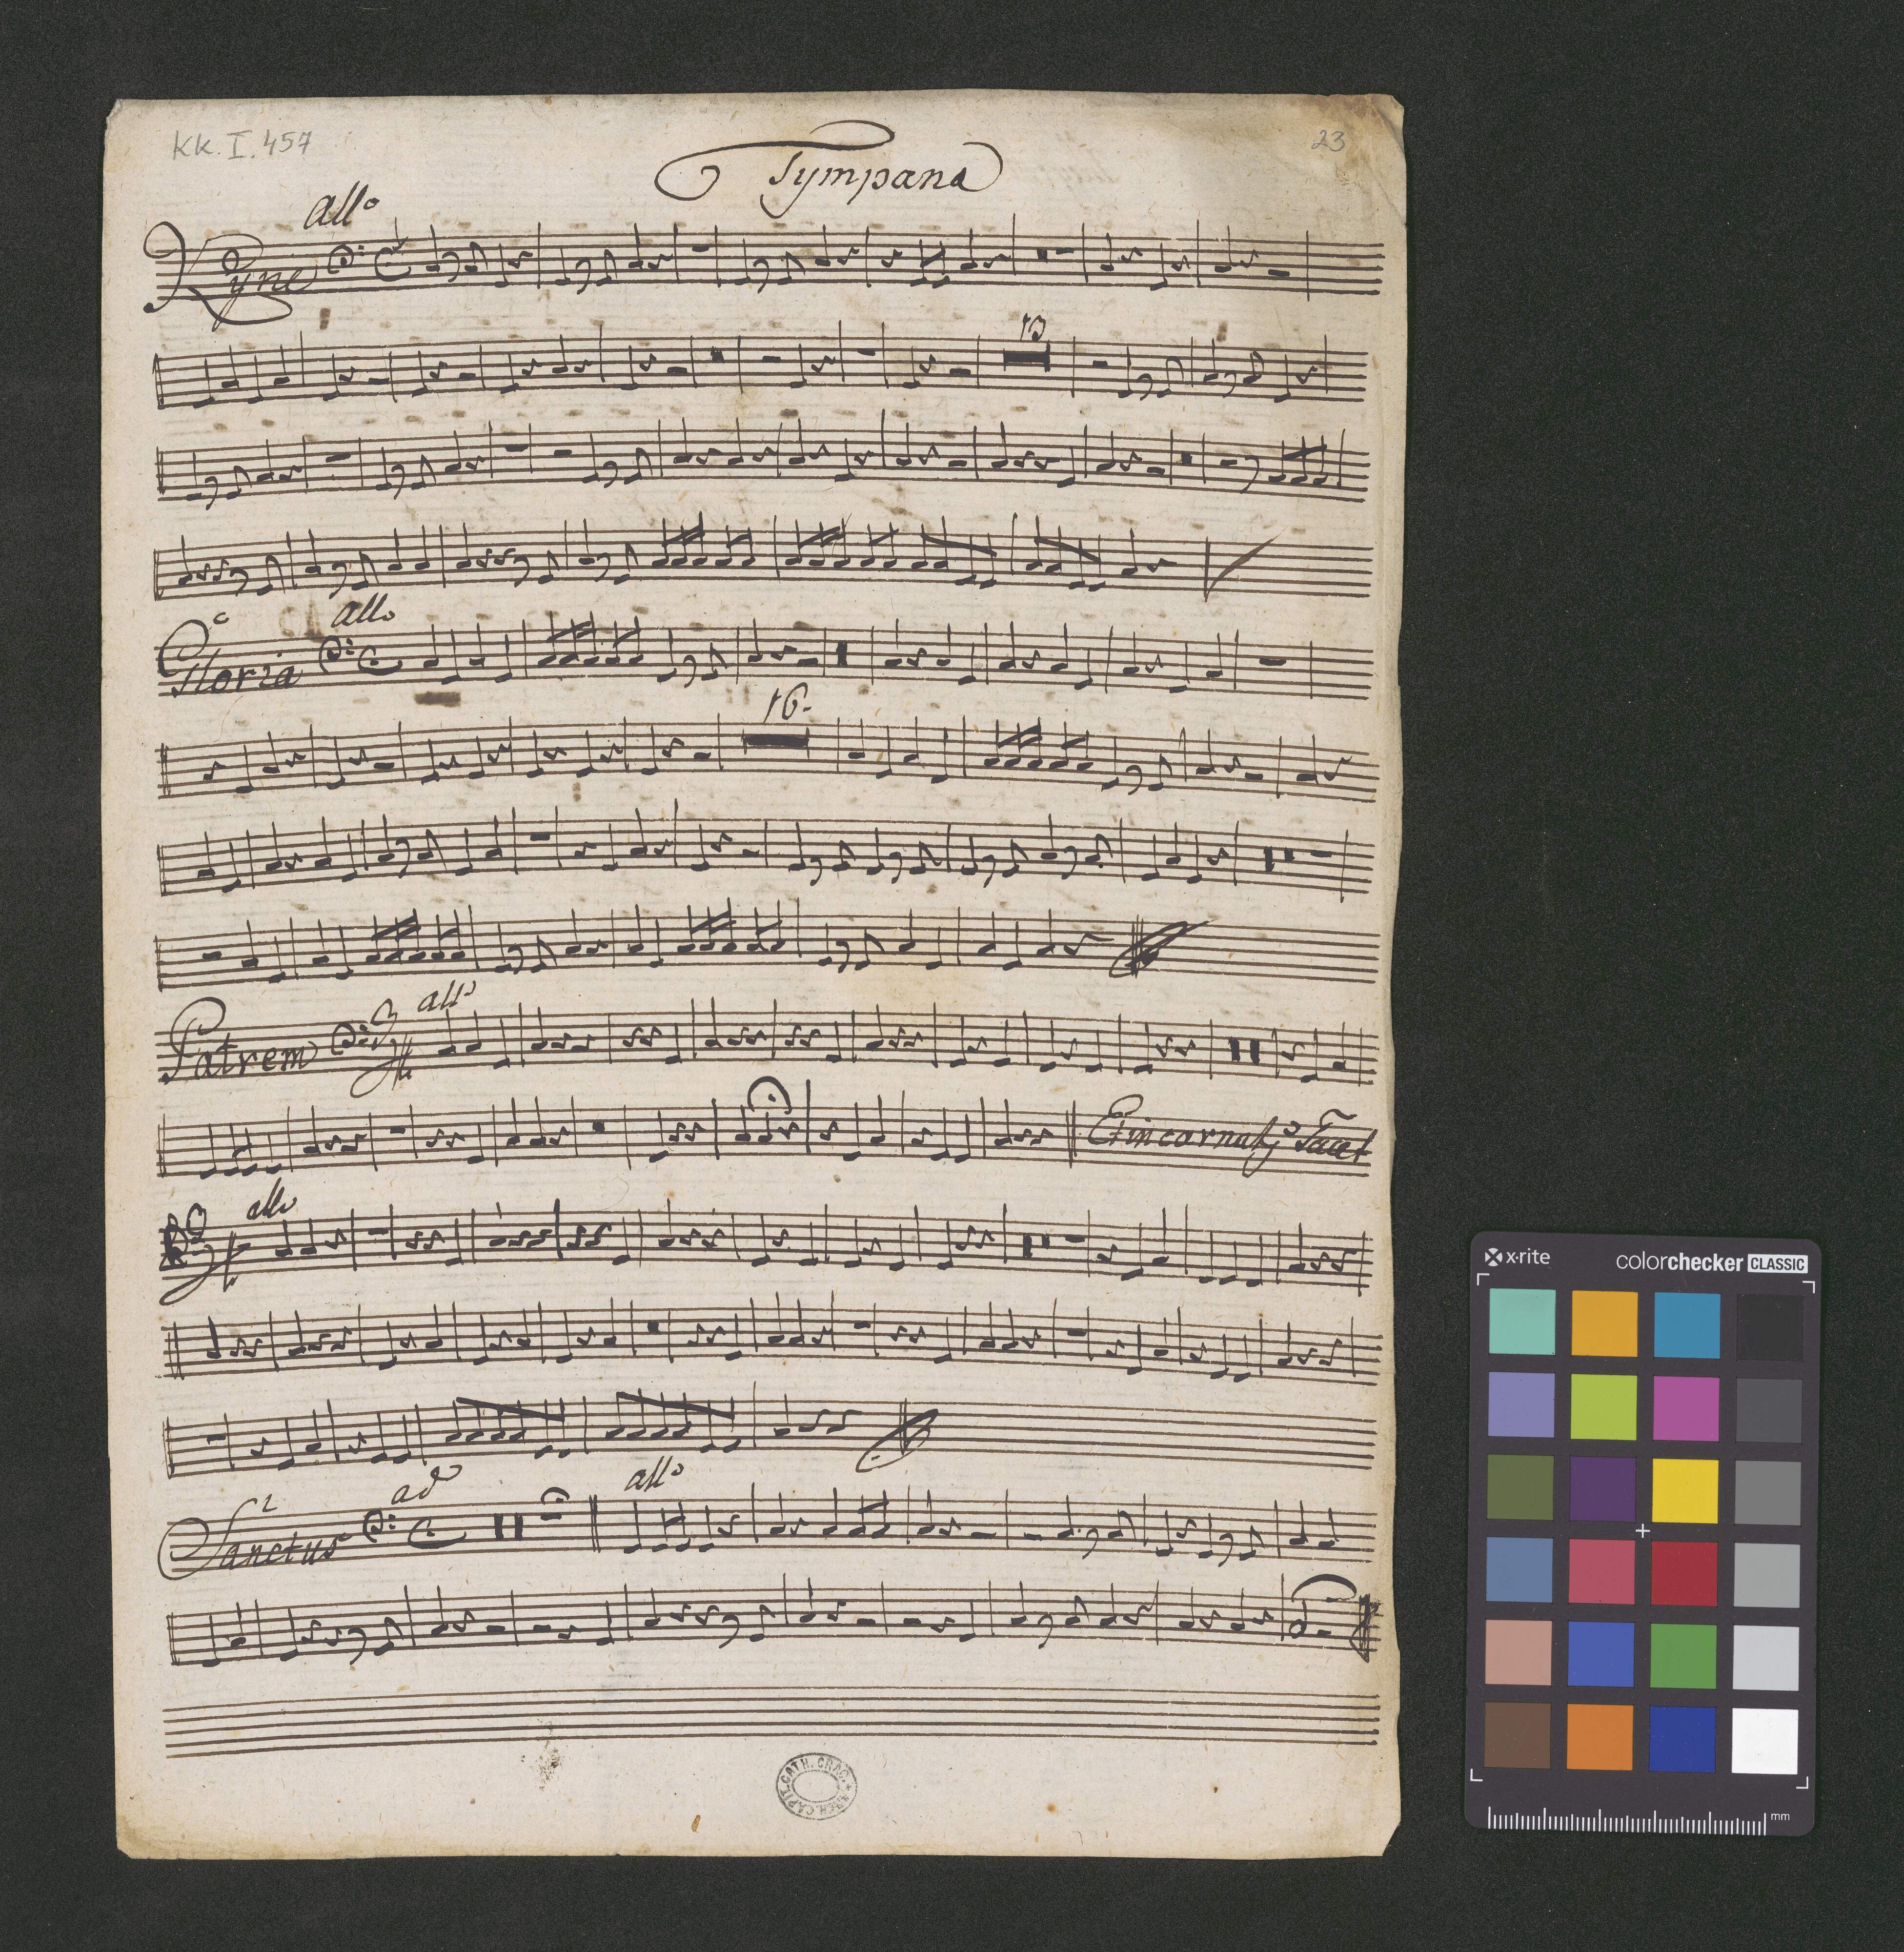 KK. I. 457
23
Tympana
allo
Kyrie
13
allo
Gloria
16.
allo
Patrem
3
Et incarnatus Tacet
allo
ado
allo
Sanctus
ARCH. CAPIT. CATH. CRAC.
x-rite
colorchecker CLASSIC
mm